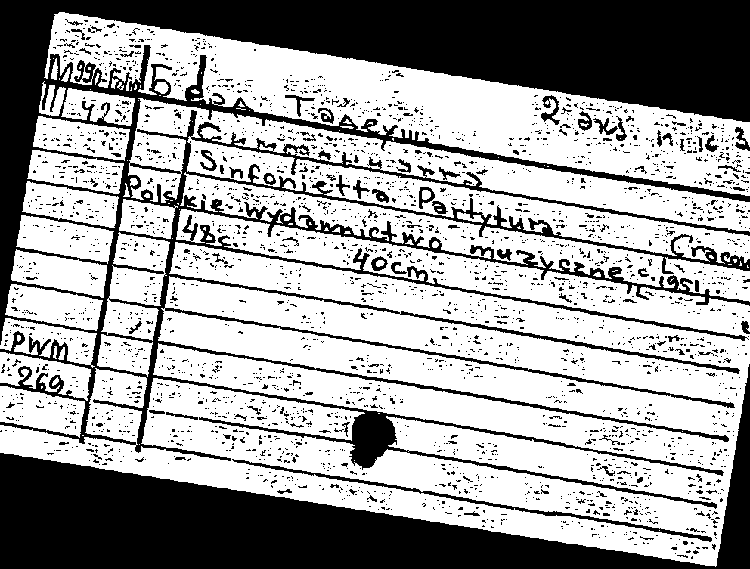 M 990-Folio
42
Бэрд, Тадеуш. 2 экз.
Симфониетта
Sinfonietta. Partytura. Cracow
Polskie wydawnictwo muzyczne, c.1951.
48с. 40cm.
PWM
269.